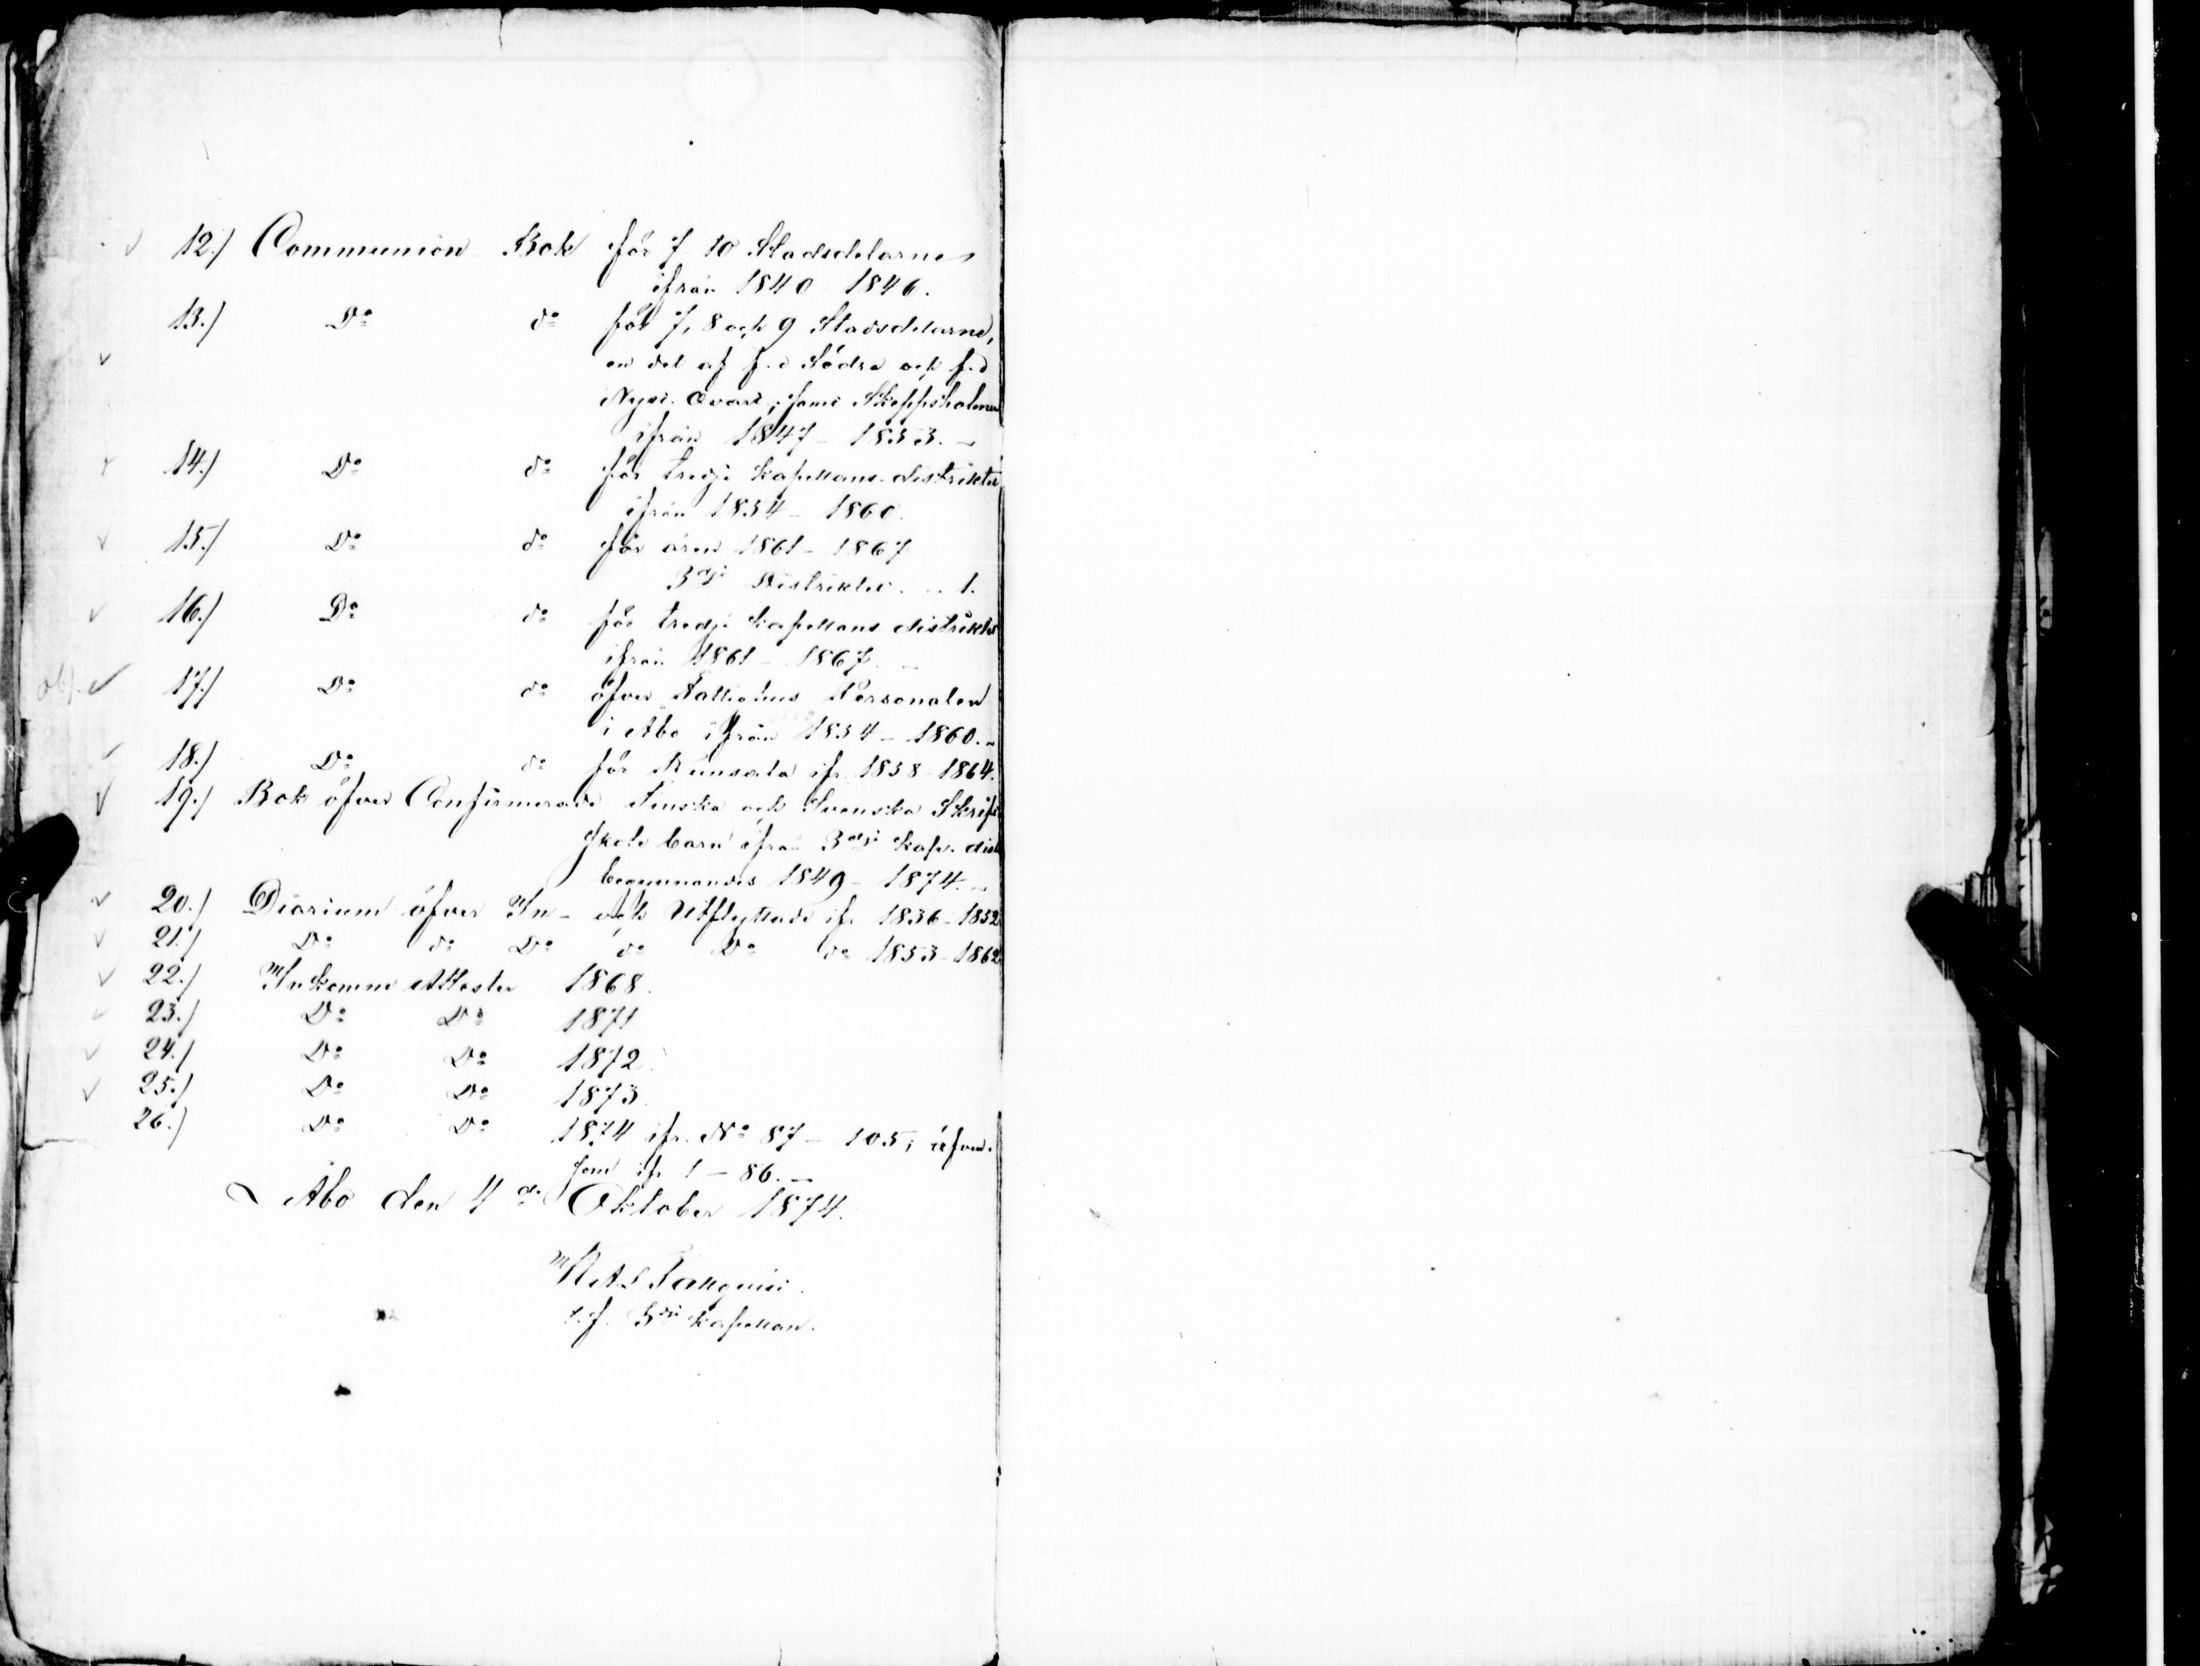 12.) Communion Bok för 7 - 10 Stadsdelarne
ifrån 1840 - 1846.
13.) Do do för 7, 8 och 9 Stadsdelarne,
en del af f.d Södra och f.d
Nya Qvart., samt Skeppsholmen
ifrån 1847 - 1853. -
14.) Do do för tredje kapellans distriktet
ifrån 1854 - 1860.
15.) Do do för åren 1861 - 1867
3dje Distriktet. 1.
16.) Do do för tredje kapellans distriktet
ifrån 1861 - 1867. -
17.) Do do öfver Fattighus Personalen
i Åbo ifrån 1854 - 1860. -
18.) Do do för Runsala ifr. 1858 - 1864.
19.) Bok öfver Confirmerade Finska och Svenska Skrift
skole barn ifrån 3dje kap. dist
begynnandes 1849 - 1874. -
20.) Diarium öfver In- och Utflyttade ifr. 1836 - 1852
21.) Do do Do do Do do 1853 - 1862
22.) Inkomne Attester 1868.
23.) Do Do 1871
24.) Do Do 1872.
25.) Do Do 1873.
26.) Do Do 1874 ifr. No 87 - 105; äfven-
som ifr 1 - 86. -
Åbo den 4de Oktober 1874.
Tallqvist.
t.f. 3dje kapellan.